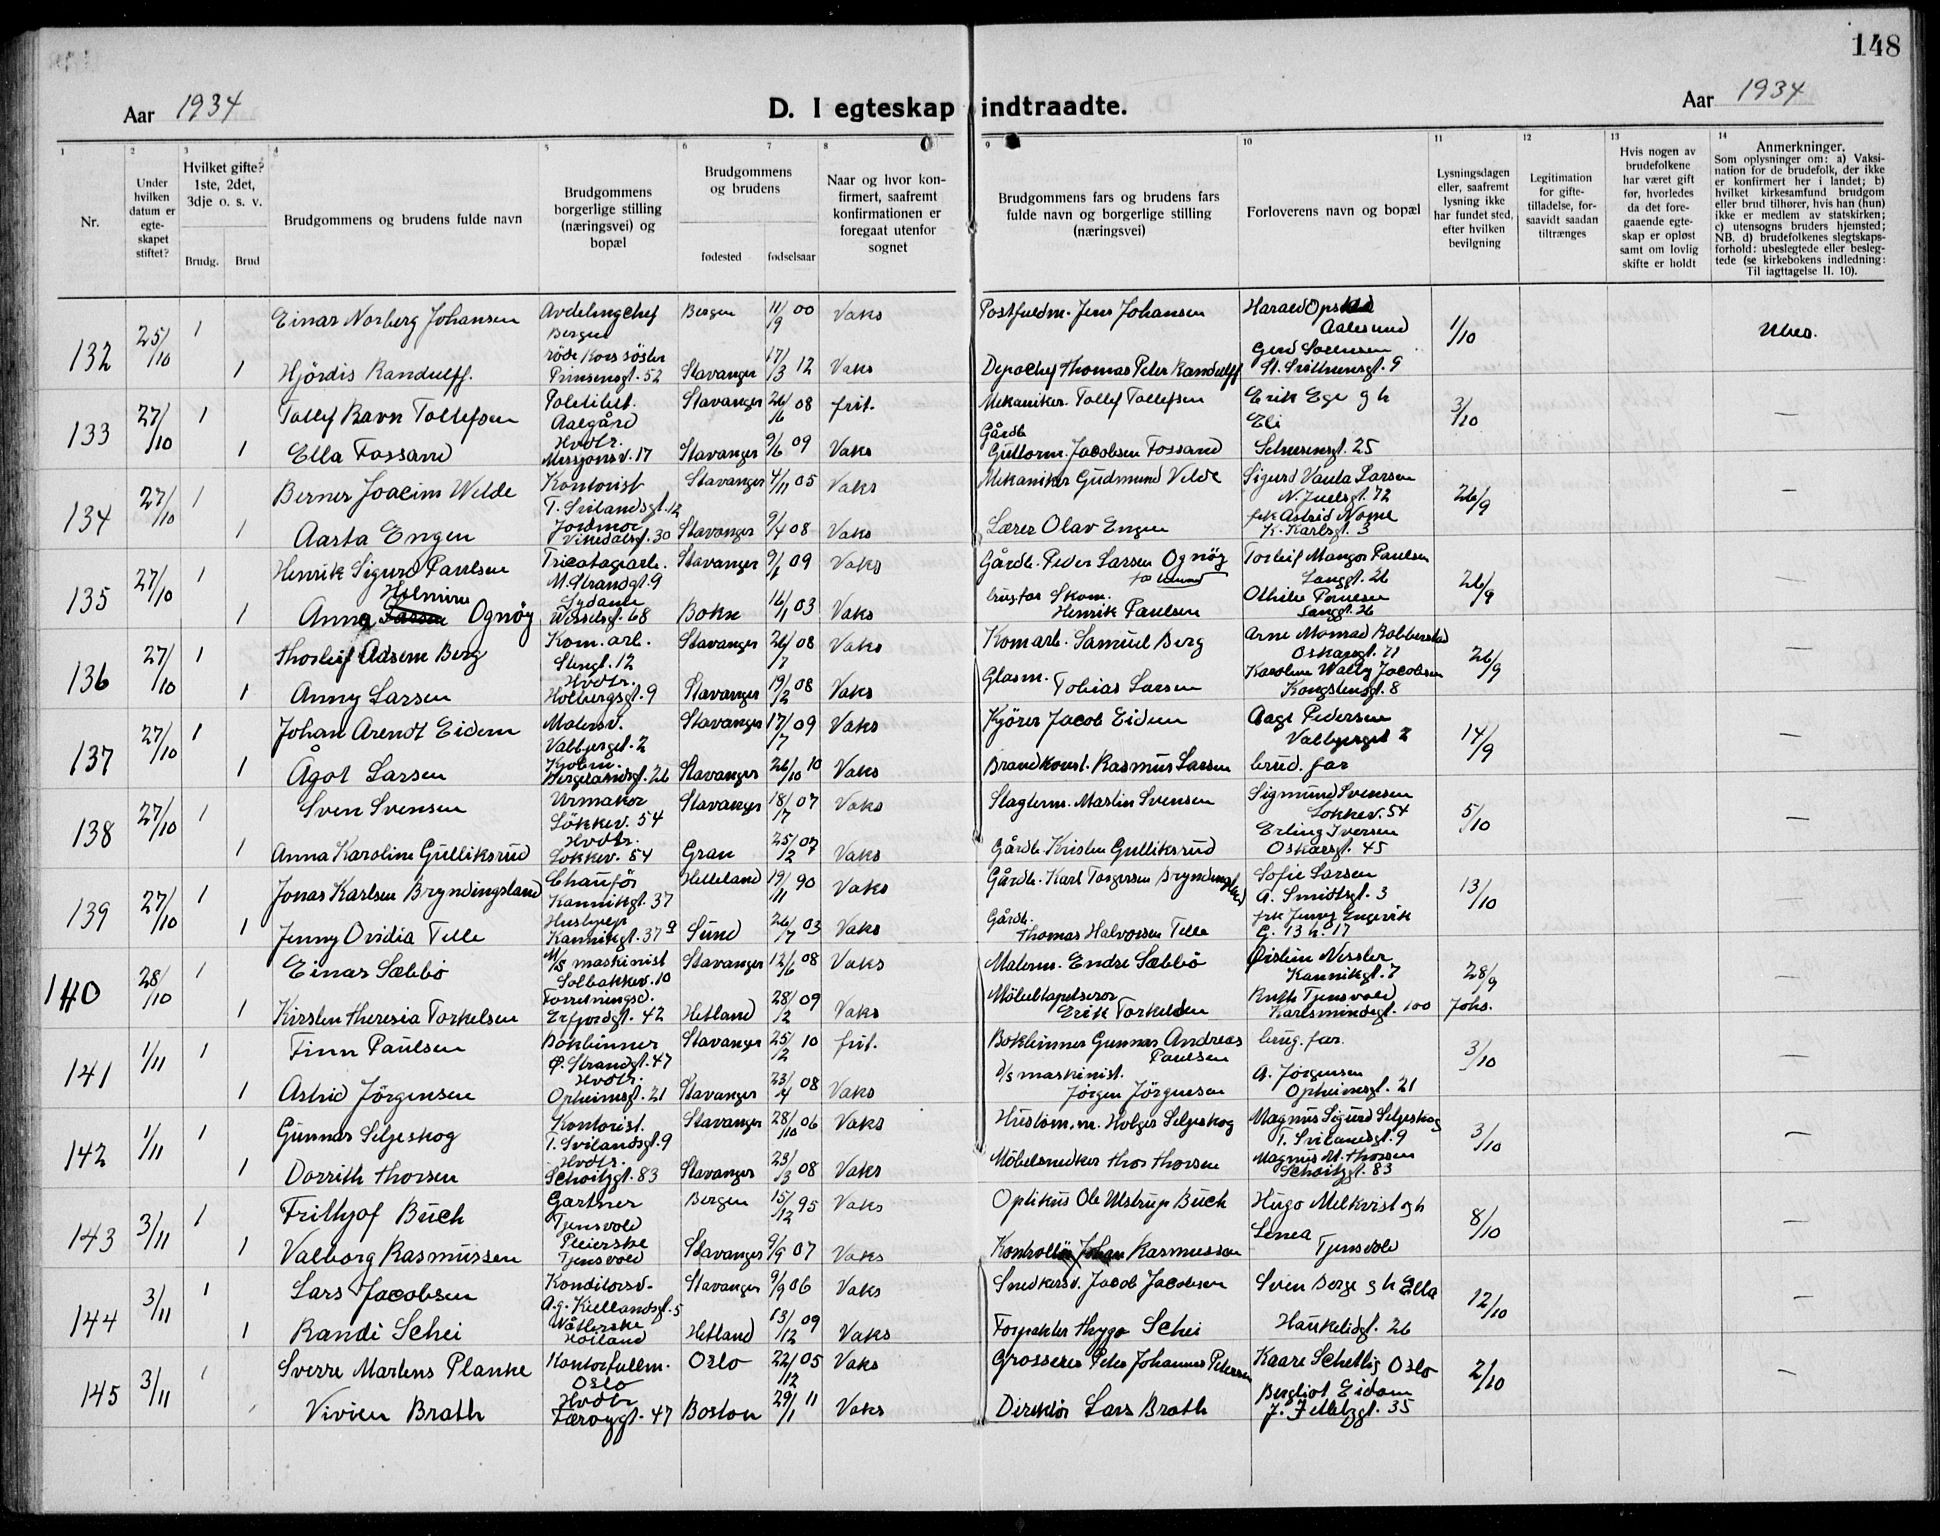 148
Aar 1934
D. I egteskap indtraadte.
Aar 1934
1
2
3
4
5
6
7
8
9
10
11
12
13
14
Nr.
Under
hvilken
datum er
egte-
skapet
stiftet?
Hvilket gifte?
1ste, 2det,
3dje o. s. v.
Brudg.
Brud
Brudgommens og brudens fulde navn
Brudgommens
borgerlige stilling
(næringsvei) og
bopæl
Brudgommens
og brudens
fødested
fødselsaar
Naar og hvor kon-
firmert, saafremt
konfirmationen er
foregaat utenfor
sognet
Brudgommens fars og brudens fars
fulde navn og borgerlige stilling
(næringsvei)
Forloverens navn og bopæl
Lysningsdagen
eller, saafremt
lysning ikke
har fundet sted,
efter hvilken
bevilgning
Legitimation
for gifte-
tilladelse, for-
saavidt saadan
tiltrænges
Hvis nogen av
brudefolkene
har været gift
før, hvorledes
da det fore-
gaaende egte-
skap er opløst
samt om lovlig
skifte er holdt
Anmerkninger.
Som oplysninger om: a) Vaksi-
nation for de brudefolk, der ikke
er konfirmert her i landet; b)
hvilket kirkesamfund brudgom
eller brud tilhører, hvis han (hun)
ikke er medlem av statskirken;
c) utensogns bruders hjemsted;
NB. d) brudefolkenes slegtskaps-
forhold: ubeslegtede eller besleg-
tede (se kirkebokens indledning:
Til iagttagelse II. 10).
132 25/10 1 Einar Norberg Johansen Avdelingchef Bergen Bergen 11/9 00 Vaks Postfuldm. Jens Johansen Harald Aalesund 1/10 Ubes.
1 Hjördis Randulff. röde Kors söster Prinsensgt. 52 Stavanger 17/3 12 Vaks Depochef Thomas Peter Randulff Gerd Soensen 9
133 27/10 1 Tollef Ravn Tollefsen Aalgård Stavanger 26/6 08 frit. Mekaniker Tollef Tollefsen Erik Ege g h Eli 3/10 —
1 Ella Fossand Hvdtr. Missjonsv. 17 Stavanger 9/6 09 Vaks Gårdb. Guttorm Jacobsen Fossand 25
134 27/10 1 Berner Joacim Welde Kontorist T. Svilandsgt. 12 Stavanger 4/11 05 Vaks Mekaniker Gudmund Velde Sigurd Vaula Larsen N. Juelsgt. 72 26/9 —
1 Aasta Engen Jordmor Vikedalsgt. 30 Stavanger 9/4 08 Vaks Lærer Olav Engen frk Astrid Nome K. Karlsgt. 3
135 27/10 1 Henrik Sigurd Paulsen Tricotagearb. M. Strandgt. 9 Stavanger 9/1 09 Vaks Gårdb. Peder Larsen Ognöy Torleif Mangor Paulsen Langgt. 26 26/9 —
1 Anna Larsen Ognöy Sydame Wesselsgt. 68 Bokn 16/1 03 Vaks Skom. Henrik Paulsen Othilie Paulsen Langgt. 26
136 27/10 1 Thorleif Adsem Berg Kom. arb. Stengt. 12 Stavanger 26/7 08 Vaks Komarb. Samuel Berg Arne Oskarsgt. 71 26/9 —
1 Anny Larsen Hvdtr. Holbergsgt. 9 Stavanger 19/2 08 Vaks Glasm. Tobias Larsen Karoline Walby Jacobsen Kongstensgt. 8
137 27/10 1 Johan Arendt Eidem Malersv. Valbjerget. 2 Stavanger 17/7 09 Vaks Kjörer Jacob Eidem Aage Pedersen Valbjerget 2 14/9 —
1 Ågot Larsen Wergelandsgt. 26 Stavanger 26/10 10 Vaks Brandkonst. Rasmus Larsen brud. far
138 27/10 1 Sven Svensen Urmaker Lökkev. 54 Stavanger 18/7 07 Vaks Slagterm. Martin Svensen Sigmund Svensen Lokkev. 54 5/10 —
1 Anna Karoline Gulliksrud Hvdtr. Lokkev. 54 Gran 25/2 07 Vaks Gårdb. Kristen Gulliksrud Erling Iversen Oskarsgt. 45
139 27/10 1 Jonas Karlsen Bryndingsland Chaufför Kannikgt. 37 Helleland 19/11 90 Vaks Gårdb. Karl Torgersen Bryndingsland Sofie Larsen A. Smidtsgt. 3 13/10 —
1 Jenny Ovidia Telle Kannikgt. 37 Sund 26/7 03 Vaks Gårdb. Thomas Halvorsen Telle frk Jenny Engevik G. 13 h. 17
140 28/10 1 Einar Sæbbö M/S maskinist Solbakkev. 10 Stavanger 12/6 08 Vaks Malerm. Endre Sæbbö Nessler Kannikgt. 7 28/9 —
1 Kirsten Theresia Torkelsen Forretningsd. Erfjordgt. 42 Hetland 28/2 09 Vaks Möbeltapetserer Erik Torkelsen Ruth Tjensvold Karlsmindegt. 100 Johs.
141 1/11 1 Finn Paulsen Bokbinner Ø. Strandgt. 47 Stavanger 25/2 10 frit. Bokbinner Gunnar Andreas Paulsen brug. far. 3/10 —
1 Astrid Jörgensen Hvdtr. Opheimsgt. 21 Stavanger 23/4 08 Vaks D/S maskinist. Jörgen Jörgensen A. Jørgensen Opheimsgt. 21
142 1/11 1 Gunnar Seljeskog Kontorist. T. Svilandsgt. 9 Stavanger 28/10 06 Vaks Holger Seljeskog Magnus Sigurd Seljeskog T. Svilandsgt. 9 3/10 —
1 Dorrith Thorsen Hvdtr. Schoitzgt. 83 Stavanger 23/3 08 Vaks Möbelsnedker Thor Thorsen Magnus M. Thorsen Schoitzgt. 83
143 3/11 1 Frithjof Buch Gartner Tjensvold Bergen 15/12 95 Vaks Optikus Ole Ulstrup Buch Hugo Melkvist og h 8/10 —
1 Valborg Rasmussen Pleierske Tjensvold Stavanger 9/9 07 Vaks Kontrollör Johan Rasmussen Linea Tjensvold
144 3/11 1 Lars Jacobsen Konditorsv. A.g. Kiellandsgt. 5 Stavanger 9/9 06 Vaks Snedkersv. Jacob Jacobsen Sven Berge g h Ella 12/10 —
1 Randi Schei Håiland Hetland 13/12 09 Vaks Forpakter Thygo Schei Haukeligt. 26
145 3/11 1 Sverre Martens Planke Kontorfullm. Oslo Oslo 22/12 05 Vaks Grosserer Peter Johannes Petersen Kaare Schetlig Oslo 2/10 —
Vivien Brath Hvdtr Færøygt. 47 Boston 29/1 11 Vaks Direktör Lars Brath Bergliot Eidam 35